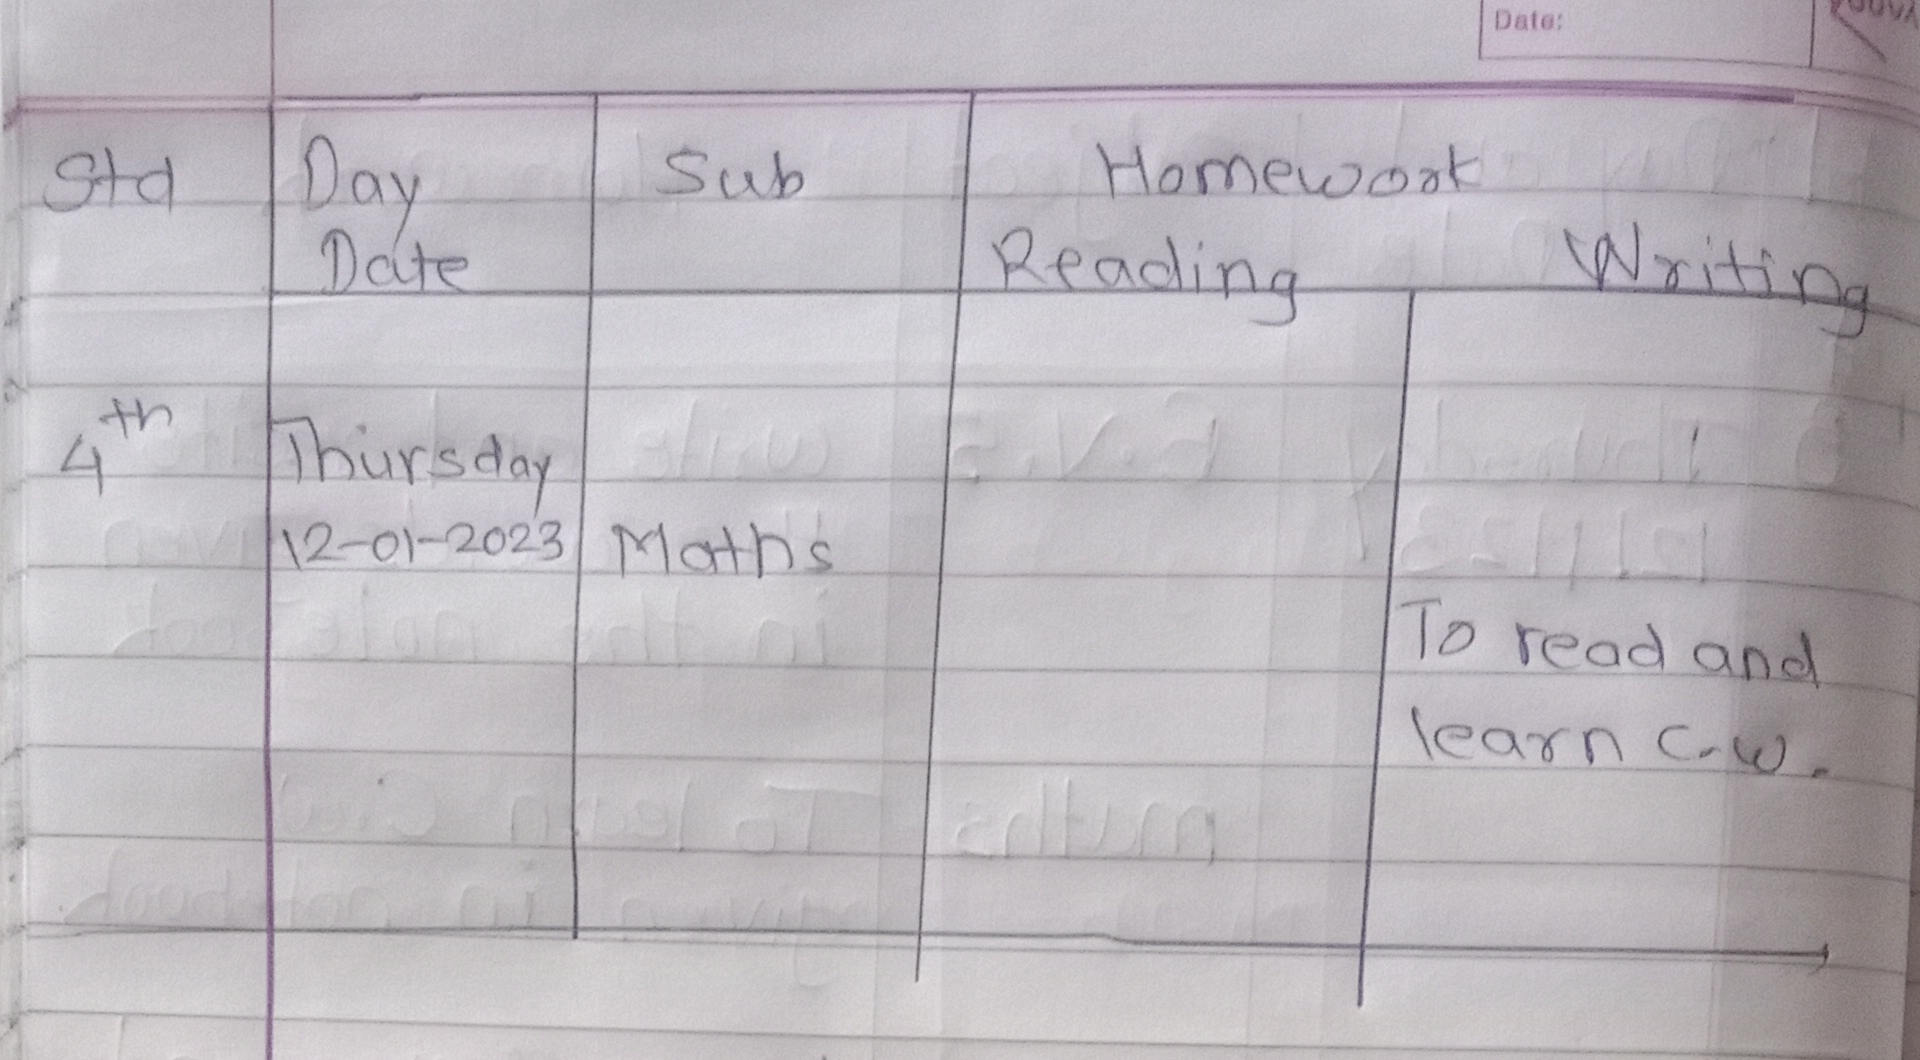 Date:
Std Day Sub Homework
Date Reading Writing
4th Thursday
12-01-2023 Maths
To read and
learn c.w.